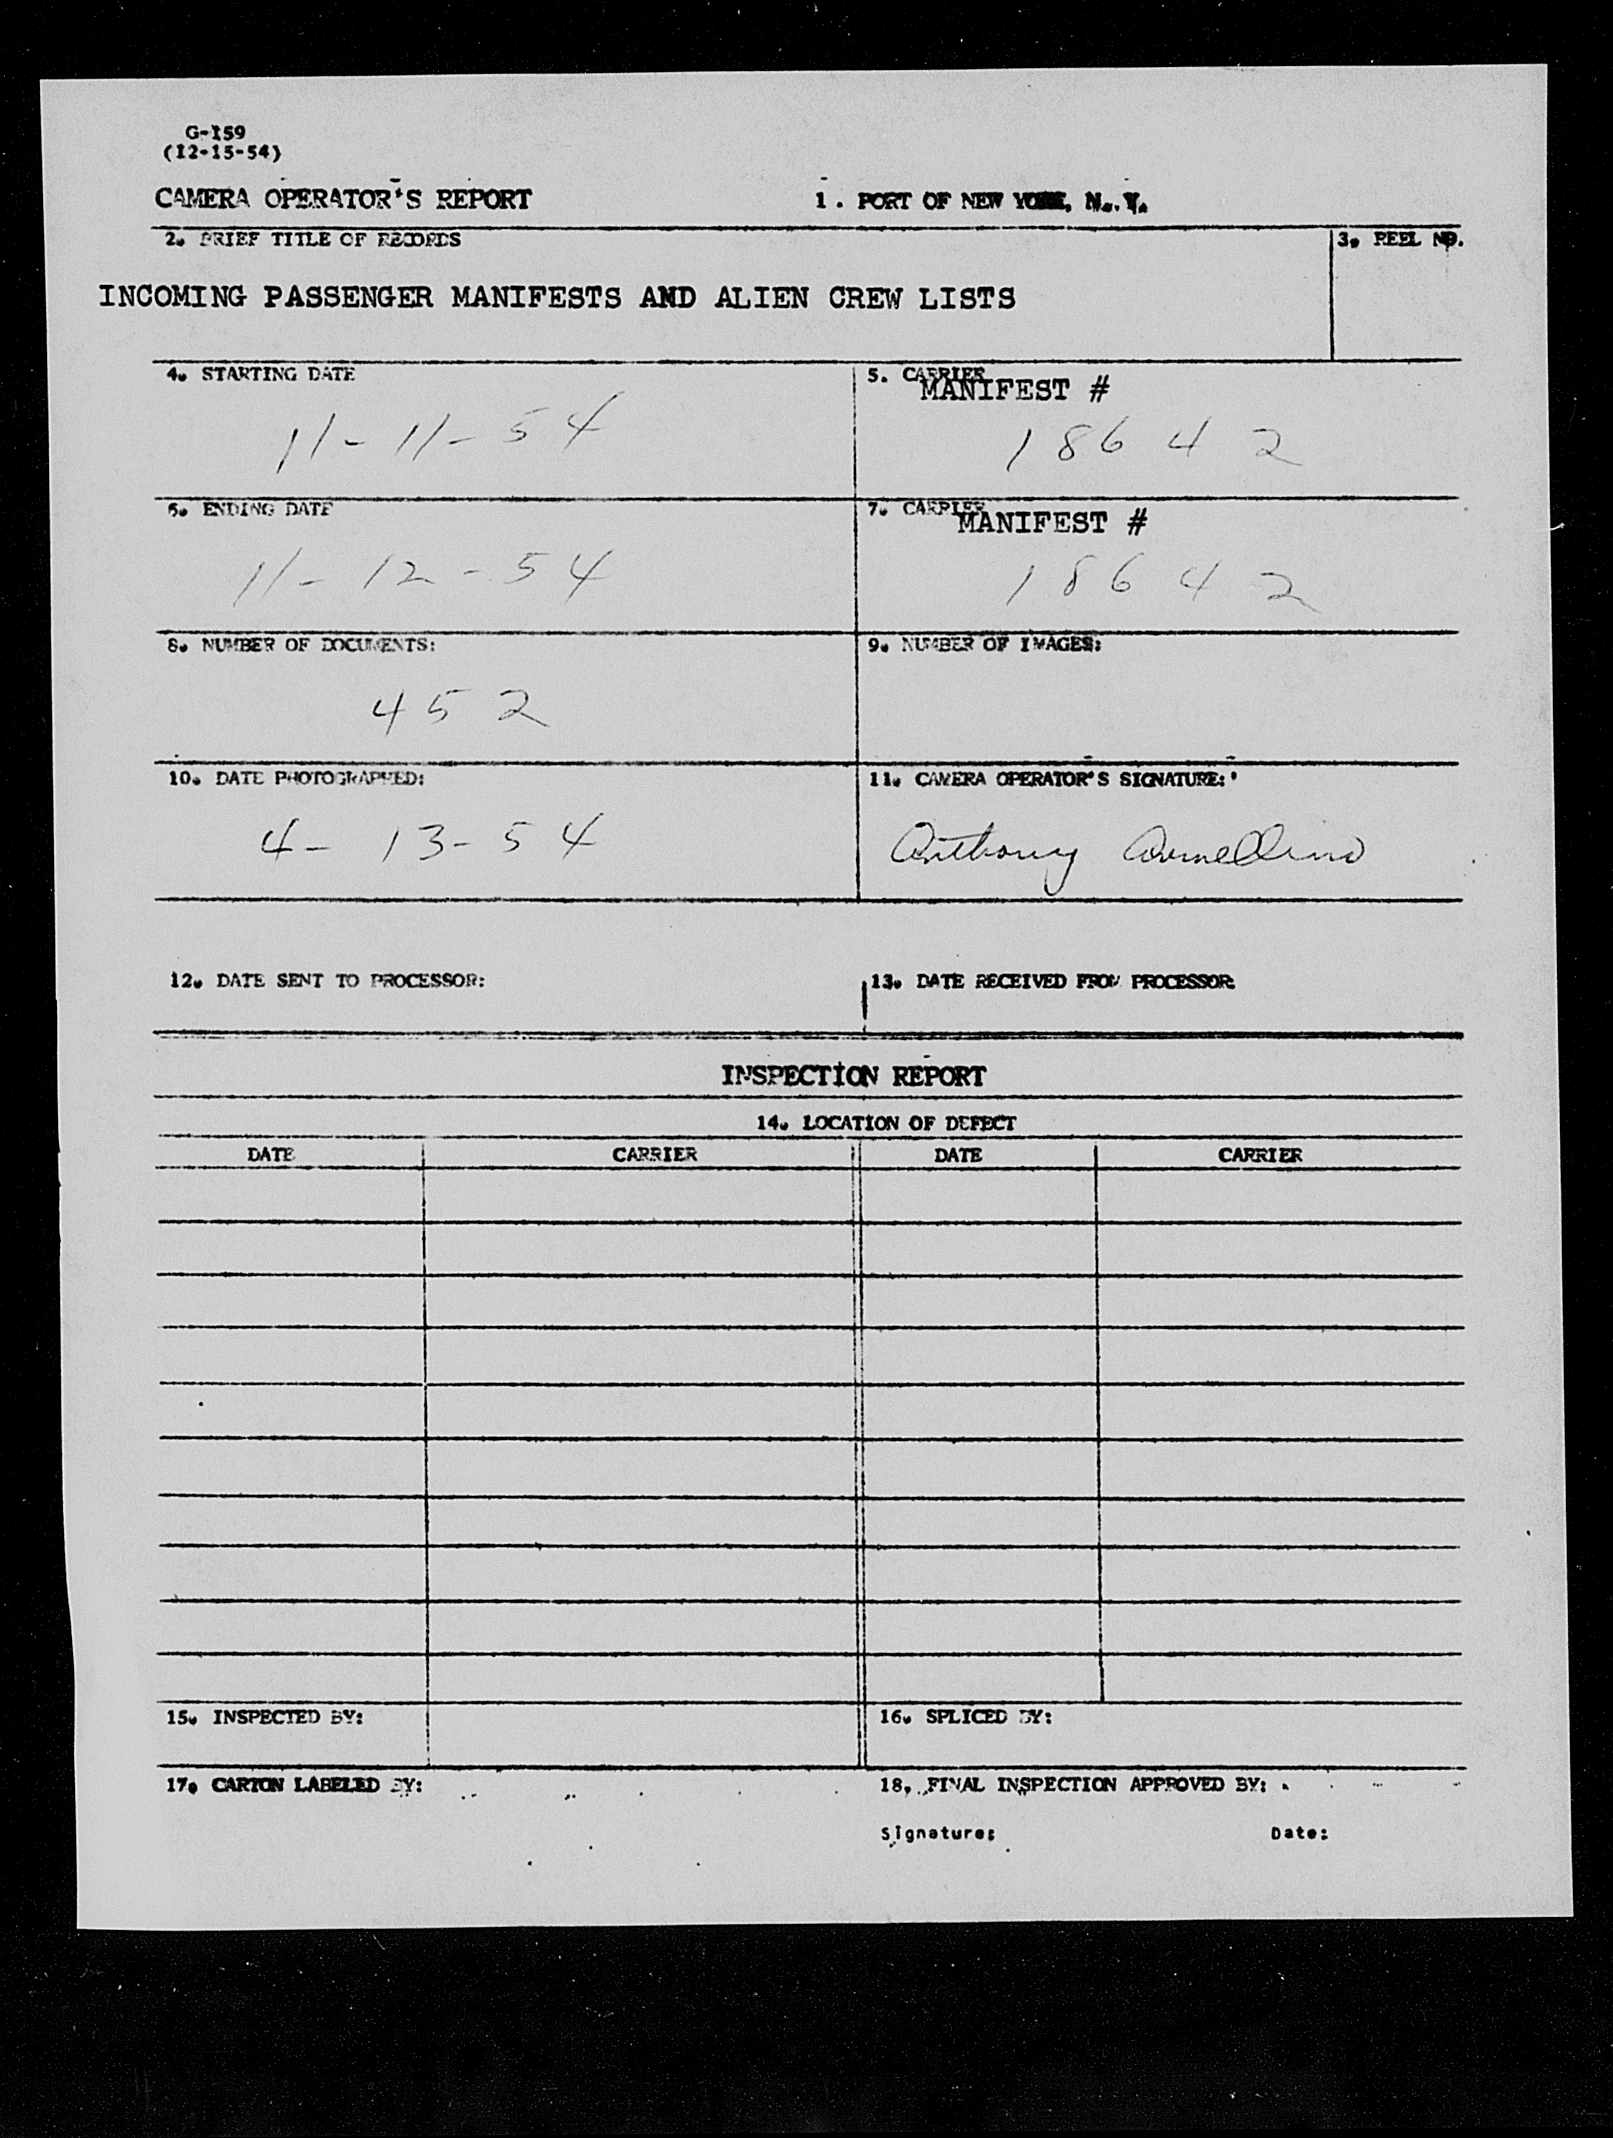 G-159
(12-15-54)
CAMERA OPERATOR'S REPORT
1. PORT OF NEW YORK, N. Y.
2. BRIEF TITLE OF RECORDS
3. REEL NO.
INCOMING PASSENGER MANIFESTS AND ALIEN CREW LISTS
4. STARTING DATE
11-11-54
5. CARRIER
MANIFEST #
18642
6. ENDING DATE
11-12-54
7. CARRIER
MANIFEST #
18642
8. NUMBER OF DOCUMENTS:
452
9. NUMBER OF IMAGES:
10. DATE PHOTOGRAPHED:
4-13-54
11. CAMERA OPERATOR'S SIGNATURE:
Anthony
12. DATE SENT TO PROCESSOR:
13. DATE RECEIVED FROM PROCESSOR
INSPECTION REPORT
14. LOCATION OF DEFECT
DATE CARRIER DATE CARRIER
15. INSPECTED BY:
16. SPLICED BY:
17. CARTON LABELED BY:
18. FINAL INSPECTION APPROVED BY:
Signature: Date: